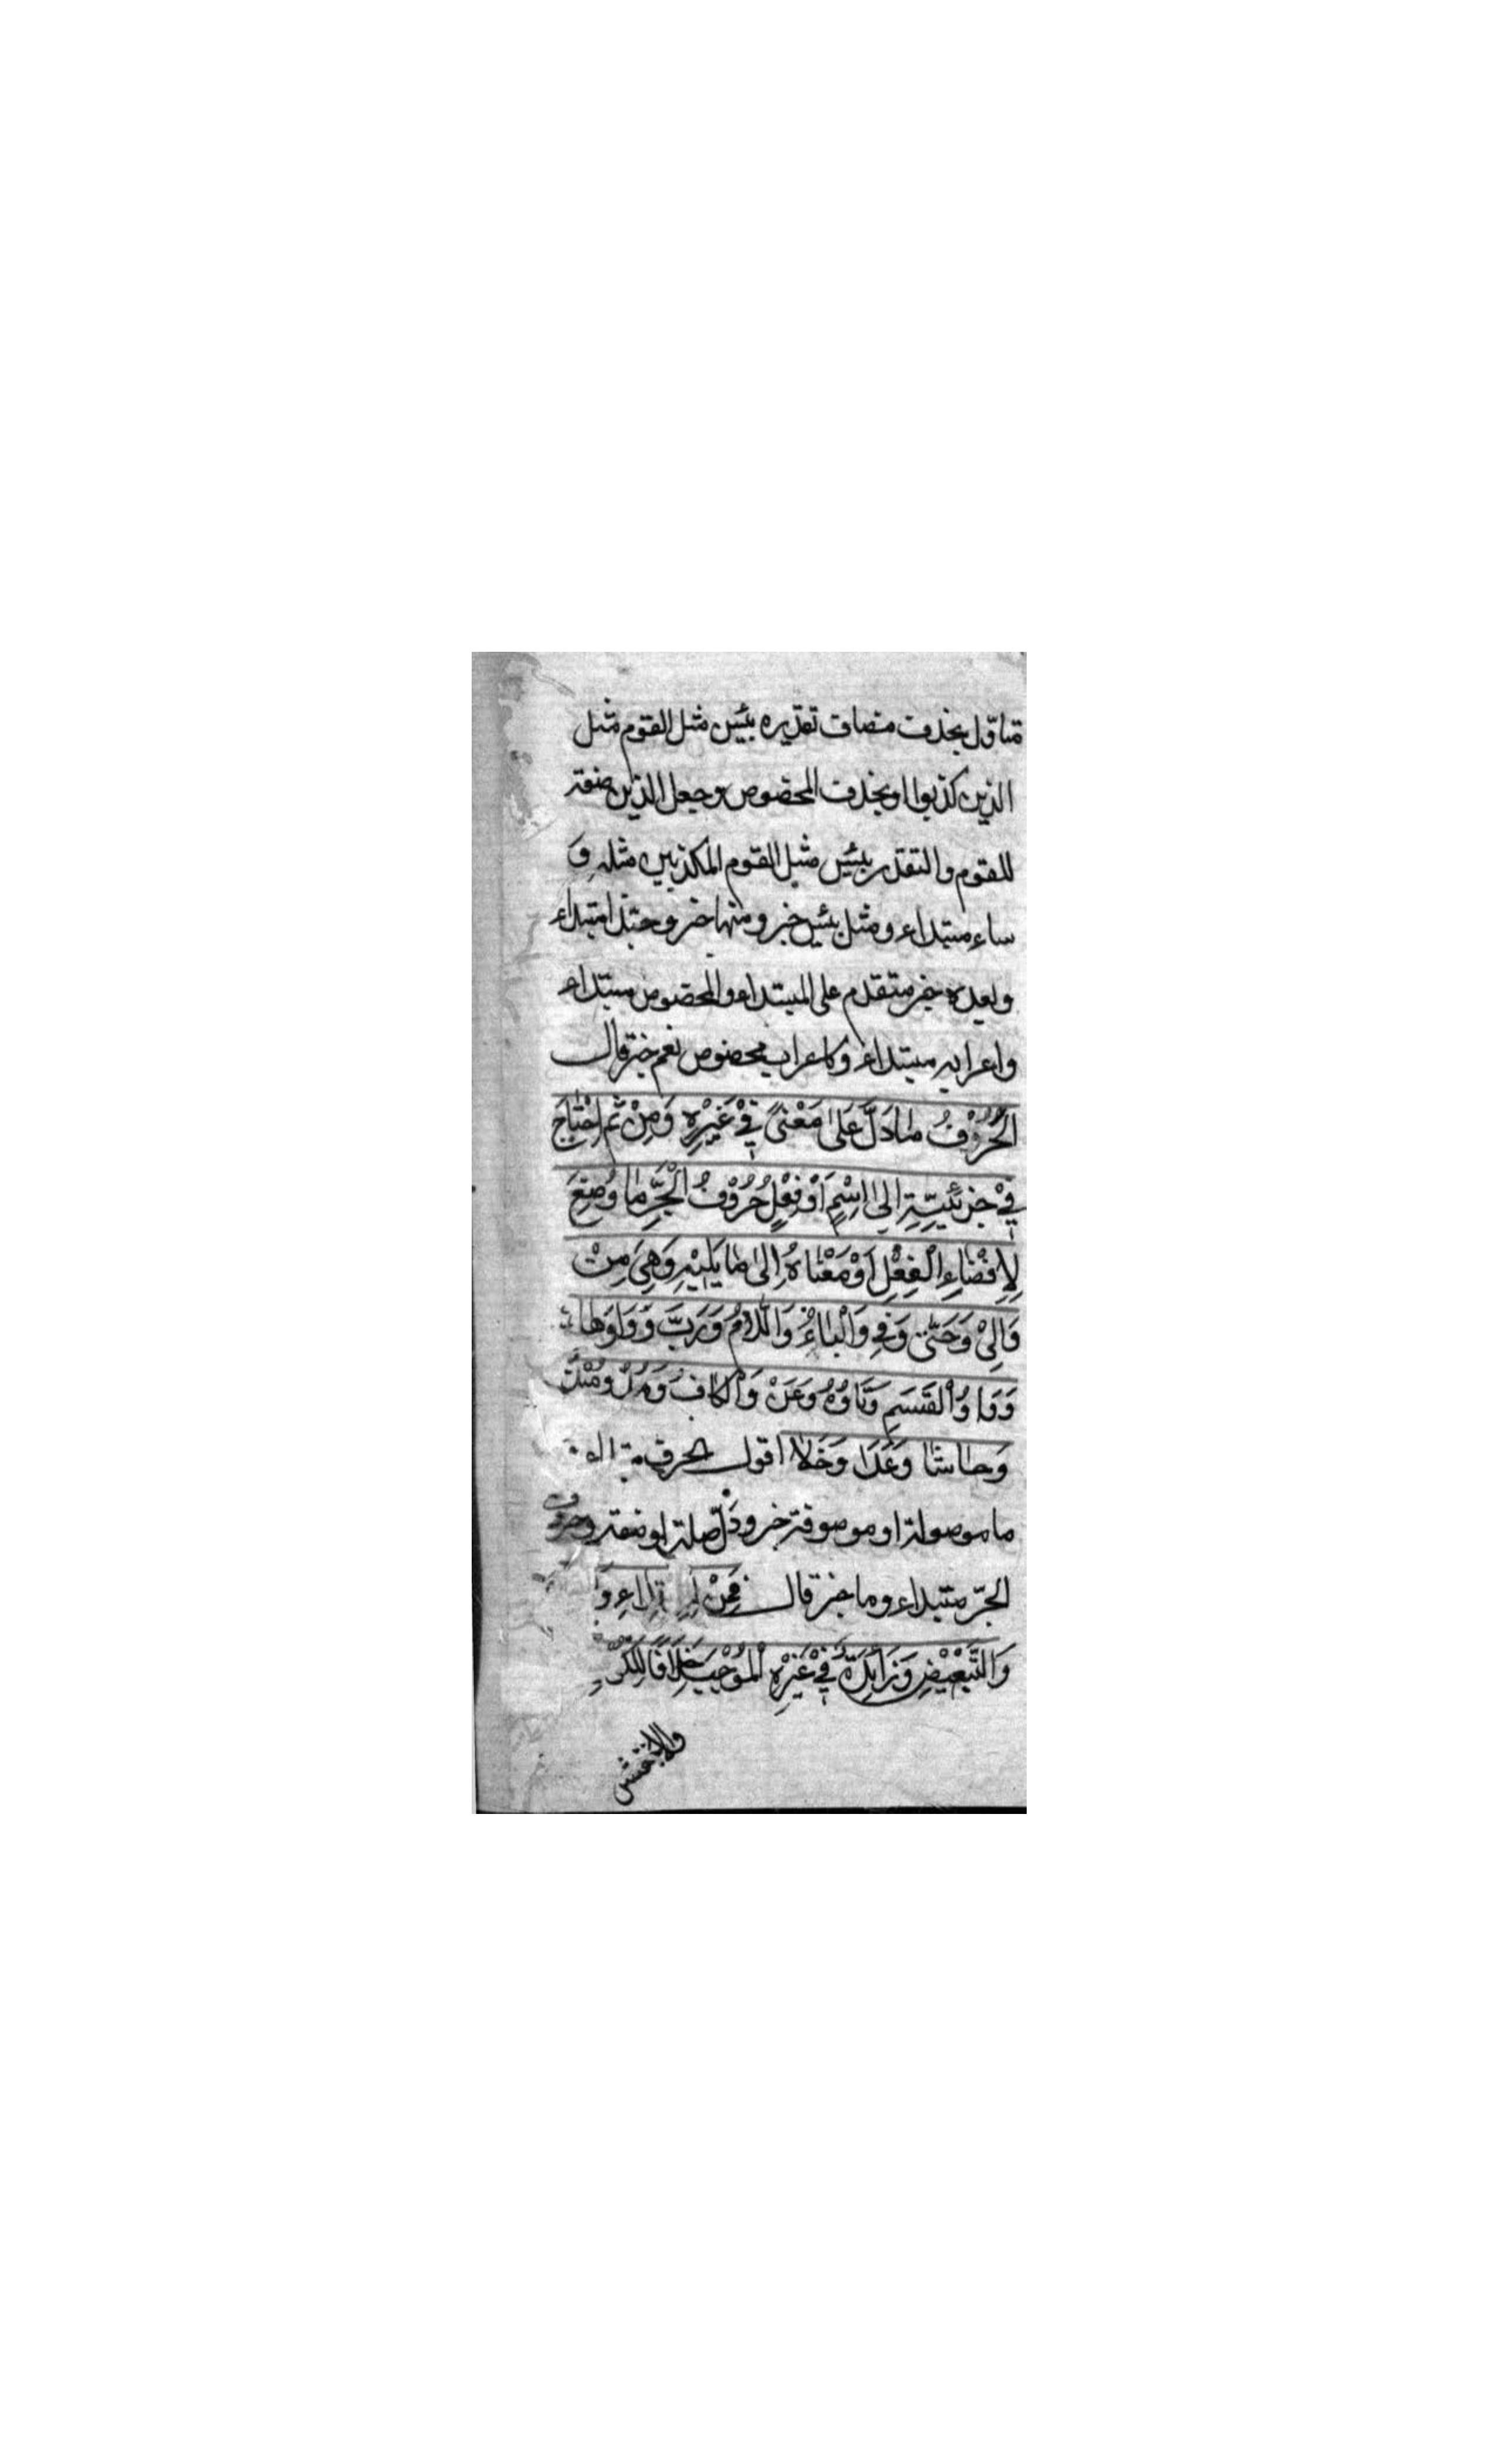 متاوّل بحذف مضاف تقديره بئس مثل القوم مثل
الذين كذبوا او بحذف المخصوص وجعل الذين صفة
للقوم والتقدير بئس مثل القوم المكذبين مثله وَ
ساء مبتداء ومثل بئس خبر ومنها خبر وحبّذا مبتداء
وبعده خبر متقدم على المبتداء والمخصوص مبتداء
واعرابه مبتداء وكاعراب مخصوص نعم خبر قال
الْحُرُوْفُ مَا دَلَّ عَلىٰ مَعْنىً فِيْ غَيْرِهٖ وَمِنْ ثَمَّ احْتَاجَ
فِيْ جزئيّتِهِ اِلىٰ اِسْمٍ اَوْ فِعْلٍ حُرُوْفُ الْجَرِّ مَا وُضِعَ
لِاِفْضَاءِ الْفِعْلِ اَوْ مَعْنَاهُ اِلىٰ مَا يَلِيْهِ وَهِيَ مِنْ
وَاِلىٰ وَحَتّىٰ وَفِي وَالْبَاءُ وَاللَّامُ وَرُبَّ وَوَاوُهَا
وَوَاوُ الْقَسَمِ وَتَاؤُهُ وَعَنْ وَالْكَافُ وَمُذْ وَمُنْذُ
وَحَاشَا وَعَدَا وَخَلَا اقول الحرف
ما موصولة او موصوفة خبر ودَلّ صلة او صفة وحروف
الجرّ مبتداء وما خبر قال فَمِنْ وَ
وَالتَّبْعِيْضِ وَزَائِدَةٌ فِيْ غَيْرِ الْمُوْجَبِ خِلَافًا لِلْكُوْ
والاخفش